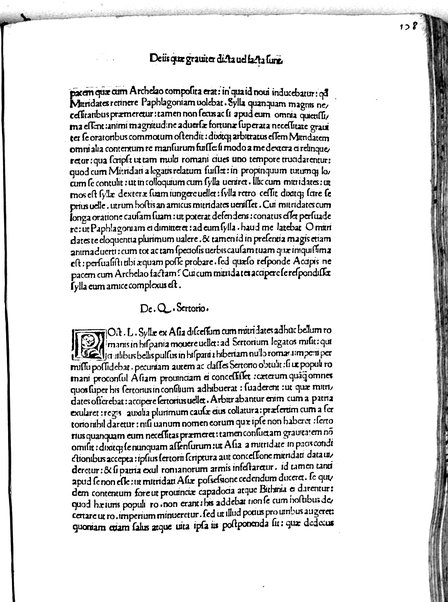 158
De iis quæ grauiter dicta uel facta sunt.
pacem quæ cum Archelao composita erat: in qua id noui inducebatur: qđ
Mitridates retinere Paphlagoniam uolebat. Sylla quanquam magnis ne,
cessitatibus præmeretur: tamen non secus ac si apud eum omnia quietissi,
ma essent: animi magnitudine aduersæ fortunæ superata necessitate graui
ter se oratoribus commotum ostendit: dixitq; arbitratus essem Mitridatem
omni alia contentum re mansurum fuisse: si modo a me dextera relinque,
retur: qua scripsit ut tam multi romani ciues uno tempore trucidarentur:
quod cum Mitridati a legatis relatum fuisset: in propinquum tutumq; lo,
cum se contulit: ut in colloquium cum sylla ueniret. Illic cum mitridates: ut
mos est syllæ dexteræ suam iungere uellet: sylla retro cessit dixitq; scire se
prius uelle, utrum hostis an amicus uenisset. Cui mitridates cum
longa oratione causam suam: ut poterat defendens: conatus esset persuade
re: ut Paphlagoniam ei dimitteret: ad eum sylla. haud me latebat O mitri
dates te eloquentia plurimum ualere. & tamen id in presentia magis etiam
animaduerti: cum tot ac tam speciosis uerbis causam tuam quæ iniquissima
est: persuasisti tibi æquam posse probare. sed quæso responde Accipis ne
pacem cum Archelao factam? Cui cum mitridates accipere se respondisset
sylla eum amice complexus est.
De. Q. Sertorio.
POst. L. Syllæ ex Asia discessum cum mitridates adhuc bellum ro
manis in hispania mouere uellet: ad Sertorium legatos misit: qui
a ciuilibus bellis pulsus in hispania hiberiam nullo romani imperii per
missu possidebat. pecuniam autem ac classes Sertorio obtulit: si ut populi ro
mani proconsul Asiam prouinciam ei concessisset: cæterum quāq; omnes
quos super his sertorius in consilium adhibuerat: suaderent: ut quæ mitri,
dates offerebat: accipere sertorius uellet. Arbitrabantur enim cum a patria
exularet: regis auxilia plurimum causæ eius collatura: præsertim cum a ser
torio nihil daretur: nisi uanum nomen earum quæ ipse non haberet: serto
rius quanquam eum necessitas præmeret: tamen consuetam grauitatem nō
omisit: dixitq; se nunquam assensurum: ut Asia a mitridate in pacis condi
ctionibus accepta: ipsius sertorii scriptura aut concessione mitridati data ui,
deretur: & si patria exul romanorum armis infestaretur. id tamen tanti
apud se non esse: ut mitridati Asiæ possessione cedendum duceret. se qui,
dem contentum fore ut prouinciæ capadocia atque Bithinia ei darentur:
quod ha nis populi ro. non erant: his addebat non se cum hostibus de,
certare ut ro. imperium minueretur. sed ut illud potius pro uiribus augeret:
quoniam etiam salus atque uita ipsa iis postponenda sit: quæ dedecus